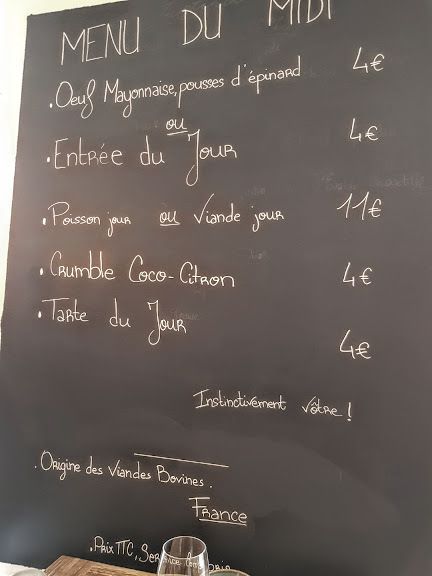 MENU DU MIDI
. Oeuf Mayonnaise, pousses d'épinard 4€
ou
. Entrée du Jour 4€
. Poisson jour ou Viande jour 11€
. Crumble Coco-Citron 4€
. Tarte du Jour
4€
Instinctivement vôtre !
. Origine des Viandes Bovines .
France
. Prix TTC,